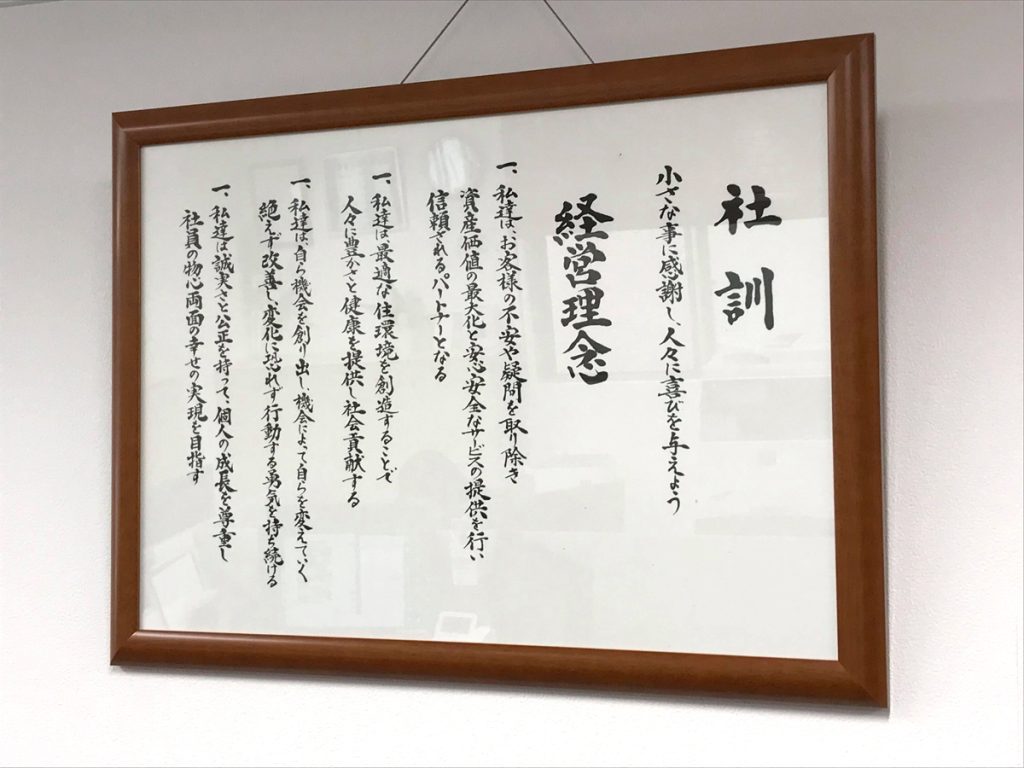 社訓
小さな事に感謝し、人々に喜びを与えよう
経営理念
一、私達は、お客様の不安や疑問を取り除き
資産価値の最大化と安心安全なサービスの提供を行い
信頼されるパートナーとなる
一、私達は最適な住環境を創造することで
人々に豊かさと健康を提供し社会貢献する
一、私達は、自ら機会を創り出し、機会によって自らを変えていく
絶えず改善し、変化に恐れず行動する勇気を持ち続ける
一、私達は誠実さと公正を持って、個人の成長を尊重し
社員の物心両面の幸せの実現を目指す